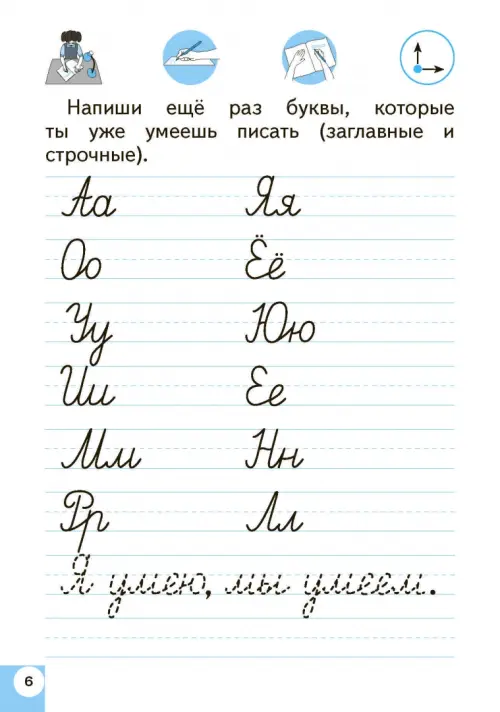 Напиши ещё раз буквы, которые
ты уже умеешь писать (заглавные и
строчные).
Аа Яя
Оо Ёё
Уу Юю
Ии Ее
Мм Нн
Рр Лл
Я умею, мы умеем.
6